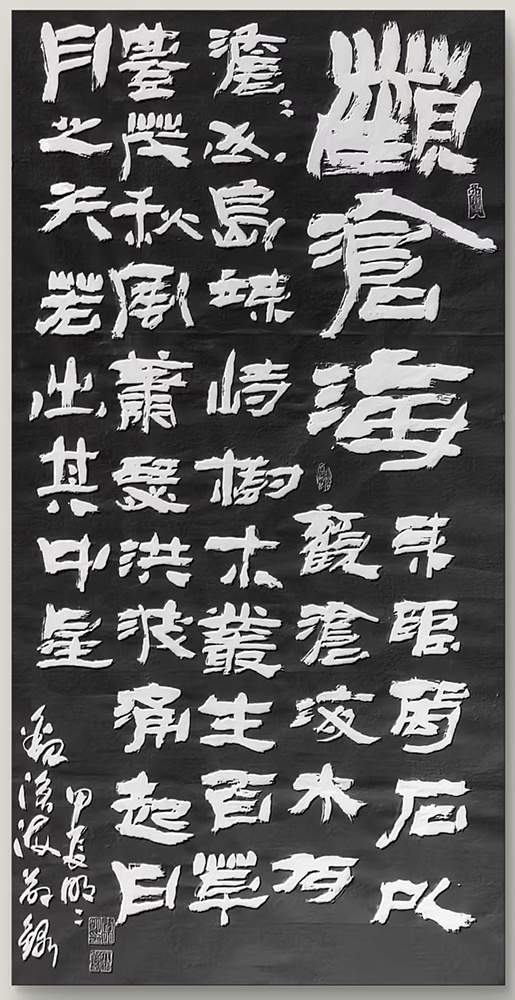 觀滄海
東臨碣石以
觀滄海水何
澹〻山島竦峙樹木叢生百草
豐茂秋風蕭瑟洪波涌起日
月之若出其中星
甲辰明〻
觀滄海節錄